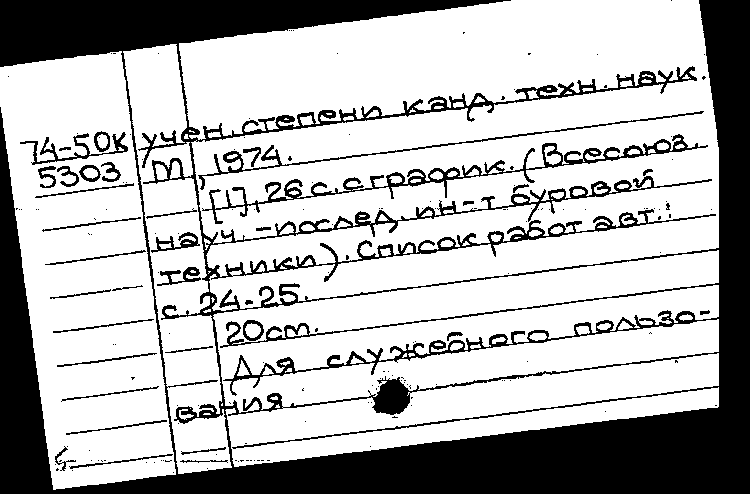 учен. степени канд. техн. наук.
74-50к
5303
М, 1974.
[1], 26 с. с график. (Всесоюз.
науч.-послед. ин-т буровой
техники). Список работ авт.:
с. 24-25.
20см.
Для служебного пользо-
вания.